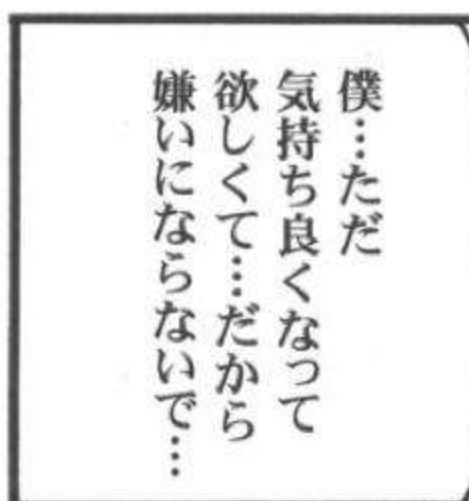 僕…ただ
気持ち良くなって
欲しくて…だから
嫌いにならないで…